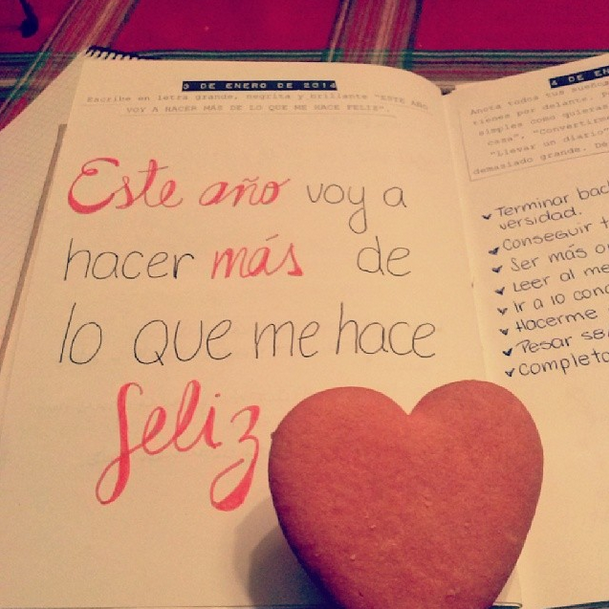 3 DE ENERO DE 2014
Escribe en letra grande, negrita y brillante "ESTE AÑO
VOY A HACER MÁS DE LO QUE ME HACE FELIZ".
Este año voy a
hacer más de
lo que me hace
feliz
4 DE EN
Anota todos tus sueños
tienes por delante. P
simples como quieras
casa", "Convertirme
"Llevar un diario
demasiado grande. De
Terminar bach
versidad.
Conseguir t
Ser más o
Leer al me
Ir a 10 conc
Hacerme
Pesar
Completa